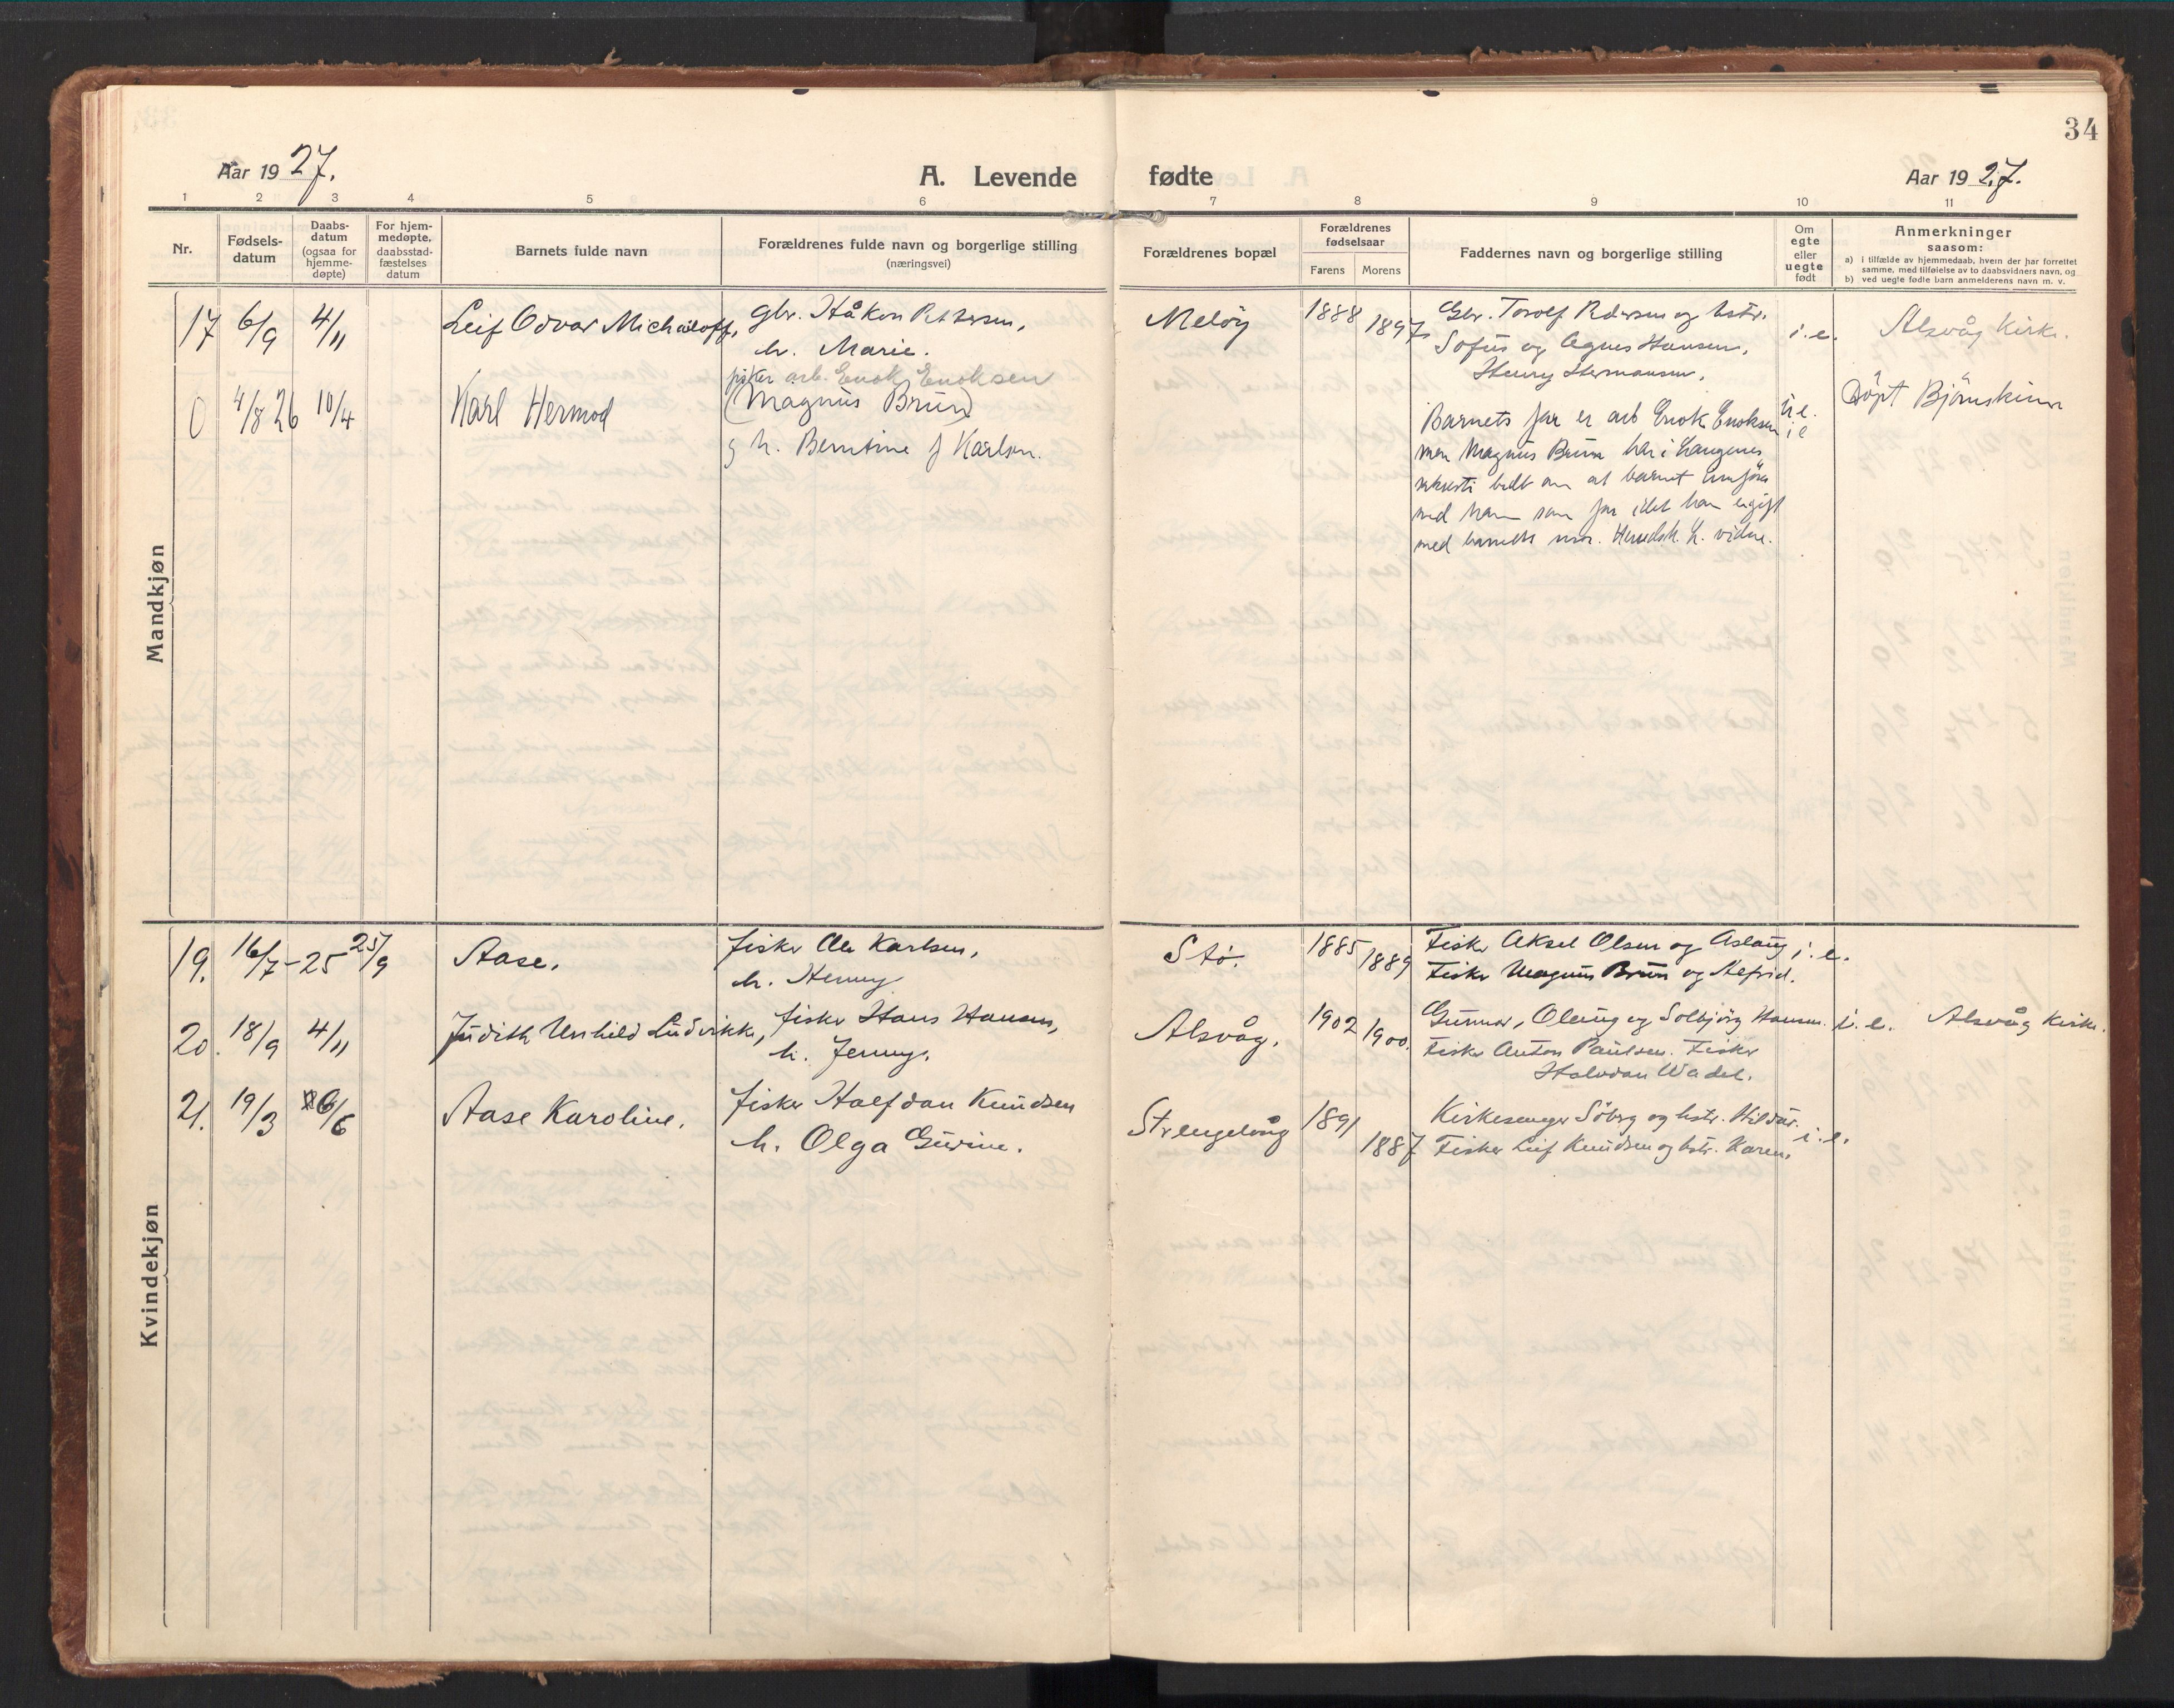 34
Aar 1927.
A. Levende
fødte
Aar 1927.
1 2 3 4 5 6 7 8 9 10 11
Nr.
Fødsels-
datum
Daabs-
datum
(ogsaa for
hjemme-
døpte)
For hjem-
medøpte,
daabsstad-
fæstelses
datum
Barnets fulde navn
Forældrenes fulde navn og borgerlige stilling
(næringsvei)
Forældrenes bopæl
Forældrenes
fødselsaar
Farens Morens
Faddernes navn og borgerlige stilling
Om
egte
eller
uegte
født
Anmerkninger
saasom:
a) i tilfælde av hjemmedaab, hvem der har forrettet
samme, med tilføielse av to daabsvidners navn, og
b) ved uegte fødte barn anmelderens navn m. v.
Mandkjøn
17 6/9 4/11 Leif Odvar Michaloff, gbr. Håkon Pettersen,
h. Marie.
Meløy 1888 1897 Gbr. Torolf Pedersen og hstr.
Sofus og Agnes Hansen,
Henry Hermansen.
i. e. Alsvåg Kirke.
0 4/8 26 10/4 Karl Hermod
fisker arb. Enok Enoksen
(Magnus Brun)
g h. Berntine f Karlsen.
Barnets far er arb Enok Enoksen
men Magnus Brun har i Langenes
bedt om at barnet
med ham som far idet han
med barnets mor. Herredsk. h. vidne.
u e.
i e
Døpt Bjørnskinn
Kvindekjøn
19. 16/7-25 25/9 Aase. fisker Ole Karlsen,
h. Henny
Stø. 1885 1889 Fisker Aksel Olsen og Aslaug
Fisker Magnus Brun og Alfrid.
i. e.
20. 18/9 4/11 Judith Unhild Ludvikke, fisker Hans Hansen,
h. Jenny.
Alsvåg. 1902 1900. Gunnar, Olaug og Solbjørg Hansen.
Fisker Anton Paulsen. Fisker
Halvdan Wadel.
i. e. Alsvåg Kirke.
21. 19/3 6/6 Aase Karoline. fisker Halfdan Knudsen
h. Olga Gurine.
Strengelvåg 1891 1887 Kirkesanger Söberg og hstr. Hildur.
Fisker Leif Knudsen og hstr. Karen.
i. e.